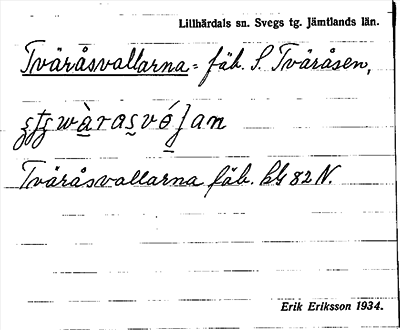 Lillhärdals sn. Svegs tg. Jämtlands län.
Tväråsvallarna = fäb. S. Tväråsen,
Tväråsvallarna fäb. bl 82 N.
Erik Eriksson 1934.